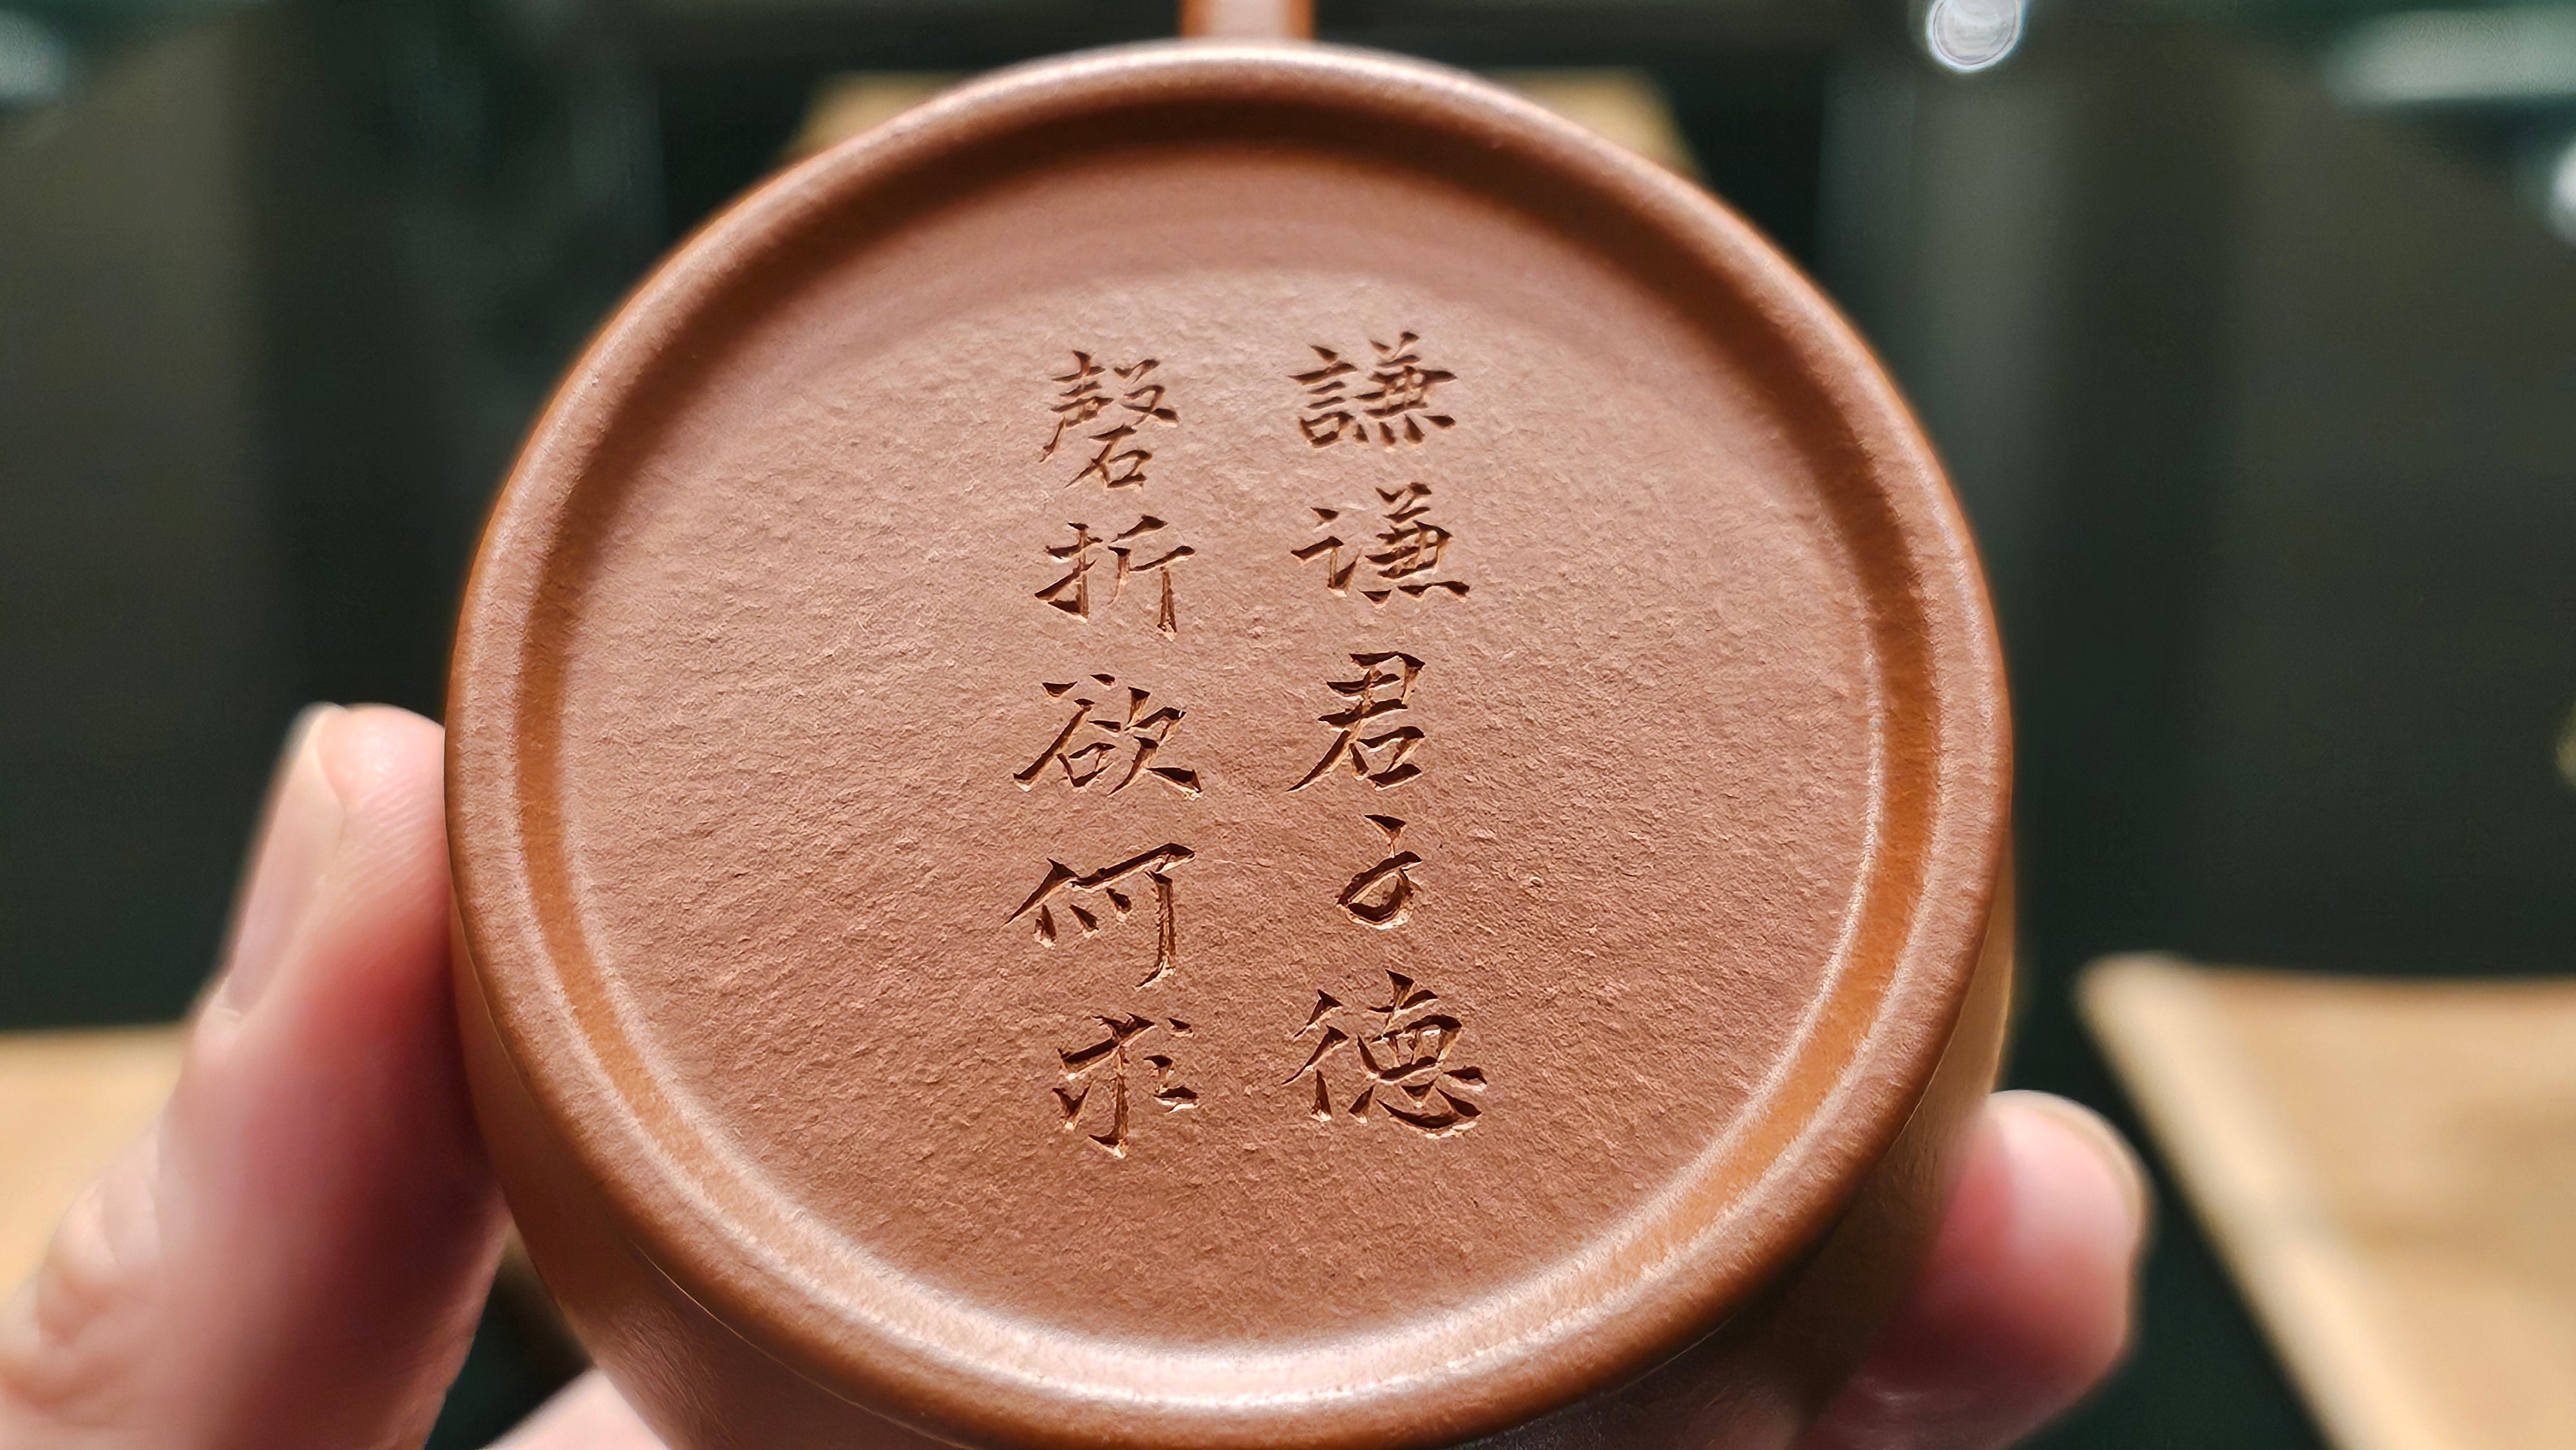 謙謙君子德
磬折欲何求